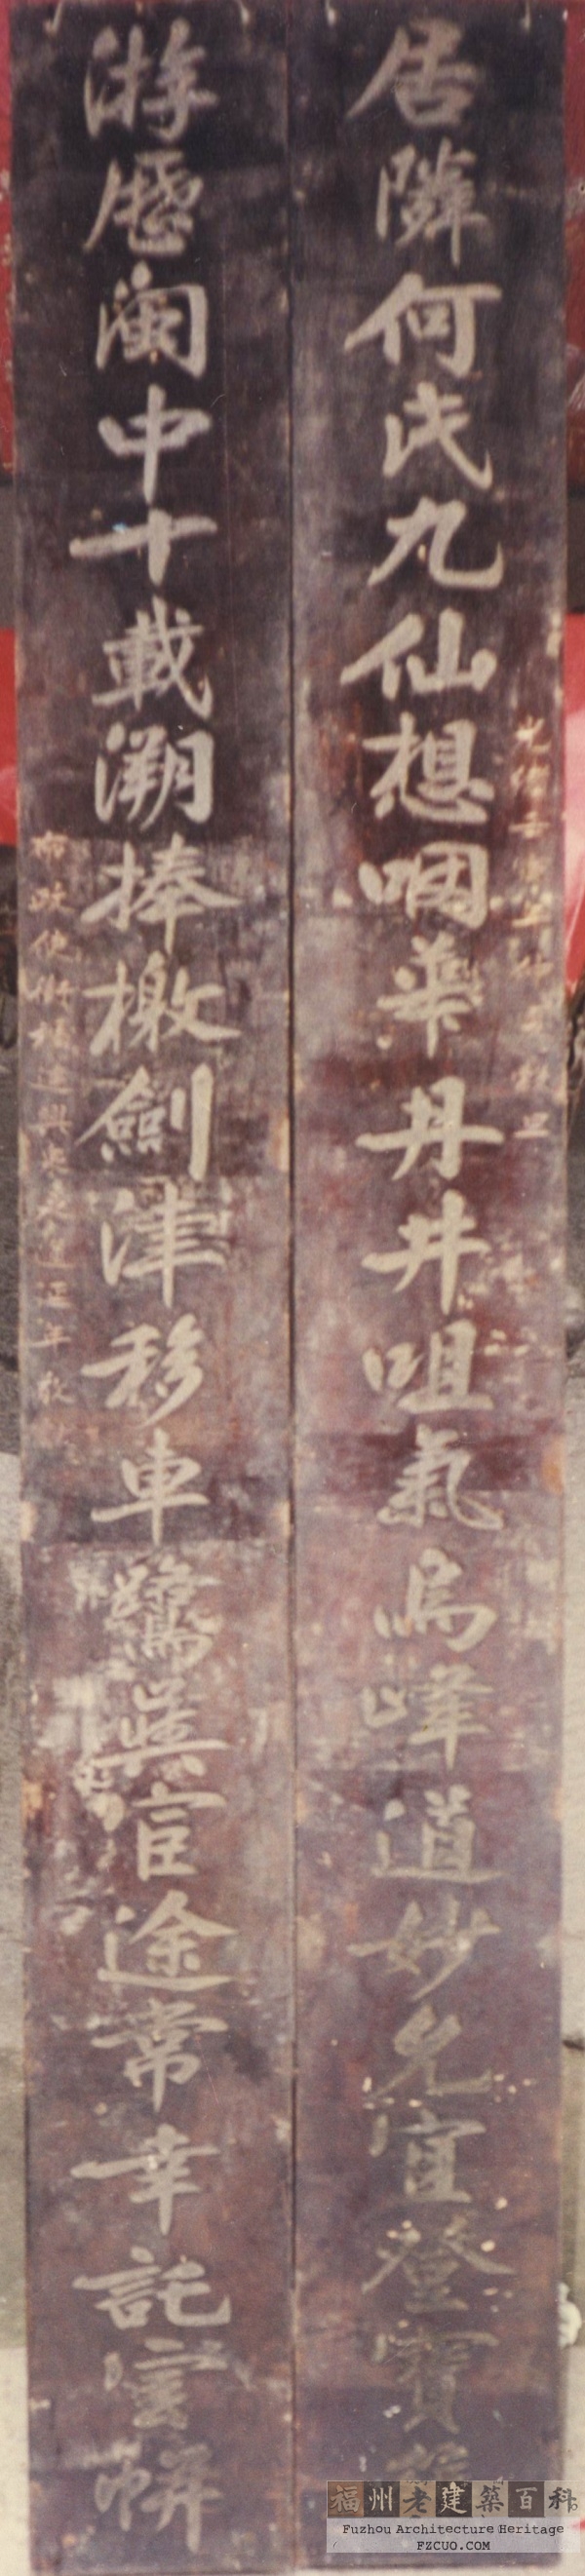 居隣何氏九仙想咽華丹井咀氣烏峰道妙允宜登寶
光緒
游歷閩中十載溯捧檄劍津移車鷺嶼宦途常幸託雲軿
布政使銜
福州老建築百科
Fuzhou Architecture Heritage
FZCUO.COM